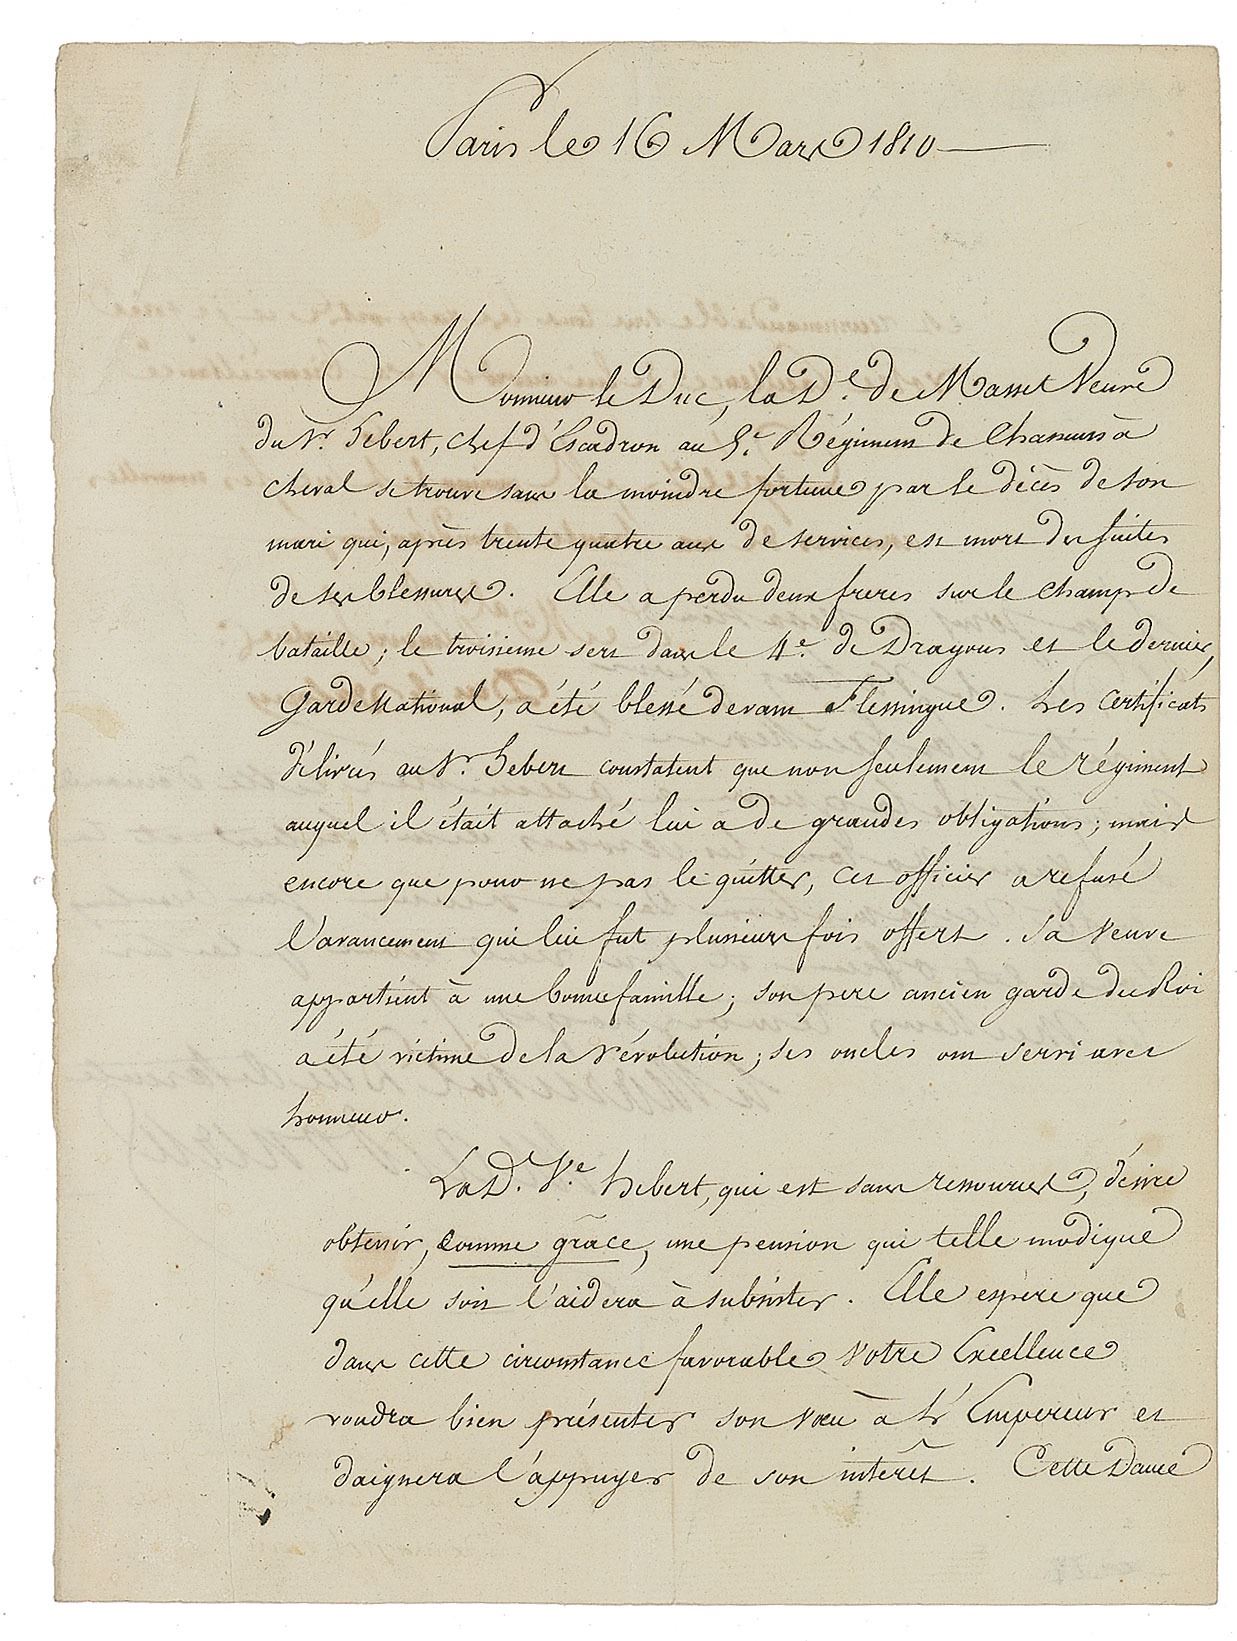 Paris le 16 Mars 1810
Monsieur le Duc, la D.e de Masset Veuve
du Sr. hebert, chef d'Escadron au 5.e Régiment de Chasseurs à
cheval se trouve sans la moindre fortune par le décès de son
mari qui, après trente quatre ans de services, est mort des suites
de ses blessures. Elle a perdu deux freres sur le champ de
bataille; le troisieme sert dans le 4.e de Dragons et le dernier,
Garde National, a été blessé devant Flessingue. Les certificats
délivrés au Sr. hebert constatent que non seulement le régiment
auquel il était attaché lui a de grandes obligations; mais
encore que pour ne pas le quitter, cet officier a refusé
l'avancement qui lui fut plusieurs fois offert. Sa Veuve
appartient à une bonne famille; son pere ancien garde du Roi
a été victime de la révolution; ses oncles ont servi avec
honneur.
La D. V.e hebert, qui est sans ressources, désire
obtenir, comme grâce, une pension qui telle modique
qu'elle soit l'aidera à subsister. Elle espère que
dans cette circonstance favorable Votre Excellence
voudra bien présenter son vœu à l'Empereur et
daignera l'appuyer de son intérêt. Cette Dame